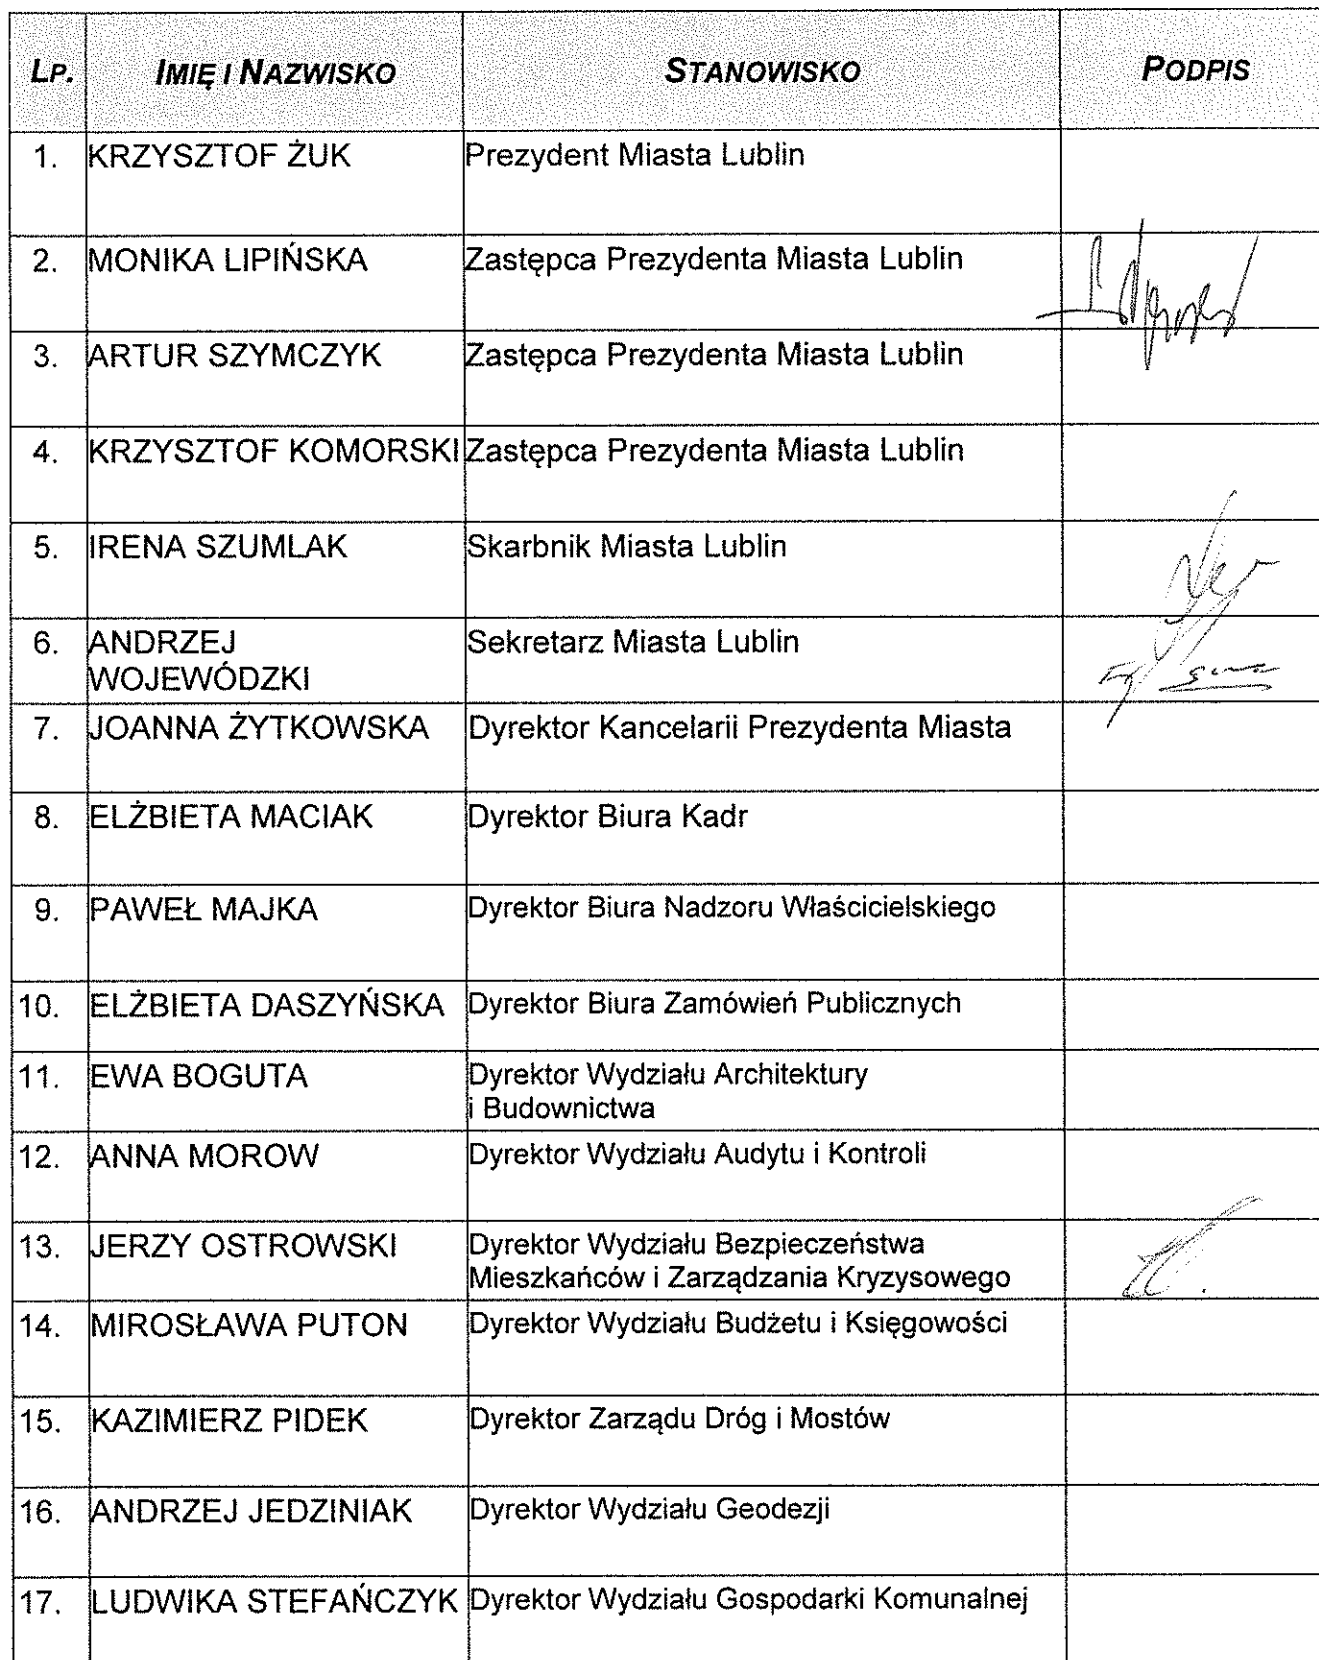 LP. IMIĘ I NAZWISKO STANOWISKO PODPIS
1. KRZYSZTOF ŻUK Prezydent Miasta Lublin
2. MONIKA LIPIŃSKA Zastępca Prezydenta Miasta Lublin
3. ARTUR SZYMCZYK Zastępca Prezydenta Miasta Lublin
4. KRZYSZTOF KOMORSKI Zastępca Prezydenta Miasta Lublin
5. IRENA SZUMLAK Skarbnik Miasta Lublin
6. ANDRZEJ Sekretarz Miasta Lublin
WOJEWÓDZKI
7. JOANNA ŻYTKOWSKA Dyrektor Kancelarii Prezydenta Miasta
8. ELŻBIETA MACIAK Dyrektor Biura Kadr
9. PAWEŁ MAJKA Dyrektor Biura Nadzoru Właścicielskiego
10. ELŻBIETA DASZYŃSKA Dyrektor Biura Zamówień Publicznych
11. EWA BOGUTA Dyrektor Wydziału Architektury
i Budownictwa
12. ANNA MOROW Dyrektor Wydziału Audytu i Kontroli
13. JERZY OSTROWSKI Dyrektor Wydziału Bezpieczeństwa
Mieszkańców i Zarządzania Kryzysowego
14. MIROSŁAWA PUTON Dyrektor Wydziału Budżetu i Księgowości
15. KAZIMIERZ PIDEK Dyrektor Zarządu Dróg i Mostów
16. ANDRZEJ JEDZINIAK Dyrektor Wydziału Geodezji
17. LUDWIKA STEFAŃCZYK Dyrektor Wydziału Gospodarki Komunalnej